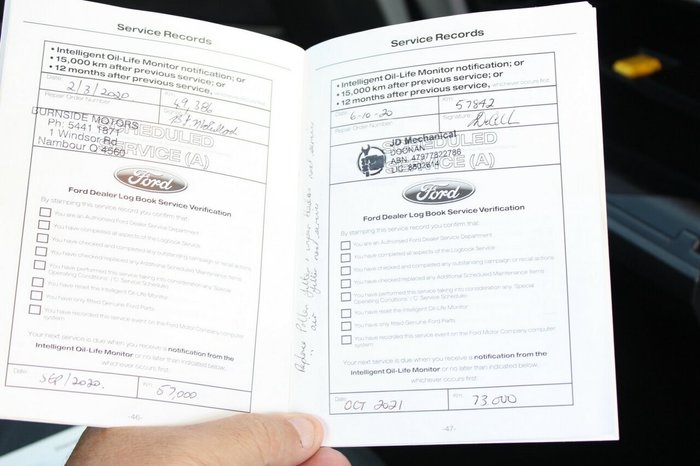 Service Records
• Intelligent Oil-Life Monitor notification; or
• 15,000 km after previous service; or
• 12 months after previous service, whichever occurs first
Date: 2/3/2020
Km: 49,386
Repair Order Number
BURNSIDE MOTORS
Ph: 5441 1871
1 Windsor Rd
Nambour Q 4560
SCHEDULED
SERVICE (A)
Ford
Ford Dealer Log Book Service Verification
By stamping this service record you confirm that:
You are an Authorised Ford Dealer Service Department
You have completed all aspects of the Logbook Service
You have checked and completed any outstanding campaign or recall actions
You have checked/replaced any Additional Scheduled Maintenance Items
You have performed this service taking into consideration any 'Special
Operating Conditions' / 'C' Service Schedule
You have reset the Intelligent Oil-Life Monitor
You have only fitted Genuine Ford Parts
You have recorded this service event on the Ford Motor Company computer
system
Your next service is due when you receive a notification from the
Intelligent Oil-Life Monitor or no later than indicated below,
whichever occurs first
Date SEP/2020
Km 57,000
-46-
Replace Pollen filter
air filter next service
Service Records
• Intelligent Oil-Life Monitor notification; or
• 15,000 km after previous service; or
• 12 months after previous service, whichever occurs first
Date: 6-10-20
Km: 57842
Repair Order Number
Signature
JD Mechanical
DOONAN
ABN. 47977822786
SCHEDULED
SERVICE (A)
Ford
Ford Dealer Log Book Service Verification
By stamping this service record you confirm that:
You are an Authorised Ford Dealer Service Department
You have completed all aspects of the Logbook Service
You have checked and completed any outstanding campaign or recall actions
You have checked/replaced any Additional Scheduled Maintenance Items
You have performed this service taking into consideration any 'Special
Operating Conditions' / 'C' Service Schedule
You have reset the Intelligent Oil-Life Monitor
You have only fitted Genuine Ford Parts
You have recorded this service event on the Ford Motor Company computer
system
Your next service is due when you receive a notification from the
Intelligent Oil-Life Monitor or no later than indicated below,
whichever occurs first
Date OCT 2021
Km 73,000
-47-